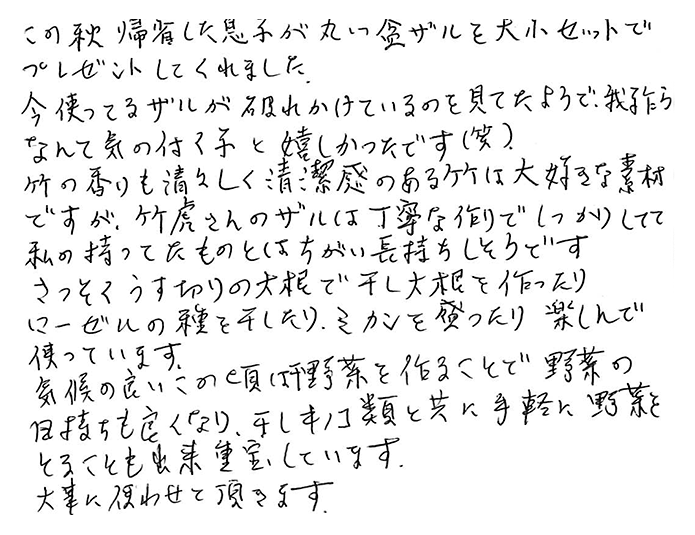 この秋 帰省した息子が丸い盆ザルを大小セットで
プレゼントしてくれました.
今使ってるザルが破れかけているのを見てたようで、我子乍ら
なんて気の付く子と嬉しかったです(笑).
竹の香りも清々しく清潔感のある竹は大好きな素材
ですが、竹虎さんのザルは丁寧な作りでしっかりしてて
私の持ってたものとはちがい長持ちしそうです
さっそくうす切りの大根で干し大根を作ったり
ローゼルの種を干したり、ミカンを盛ったり 楽しんで
使っています.
気候の良いこの頃は干野菜を作ることで野菜の
日持ちも良くなり、干しキノコ類と共に手軽に野菜を
とることも出来重宝しています.
大事に使わせて頂きます.